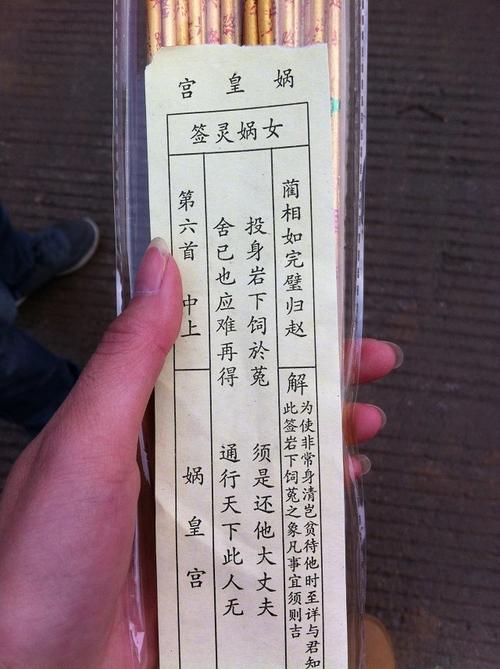 娲皇宫
女娲灵签
蔺相如完璧归赵
解
为使非常身清岂贫待他时至详与君知
此签岩下饲菟之象凡事宜须则吉
投身岩下饲於菟 须是还他大丈夫
舍已也应难再得 通行天下此人无
第六首 中上
娲皇宫